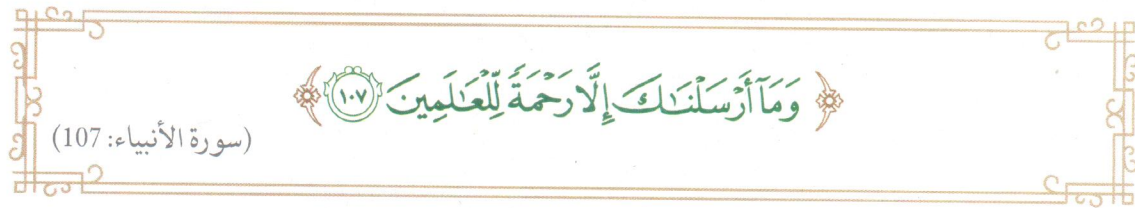 ﴿ وَمَآ أَرْسَلْنَٰكَ إِلَّا رَحْمَةً لِّلْعَٰلَمِينَ ١٠٧ ﴾
(سورة الأنبياء: 107)